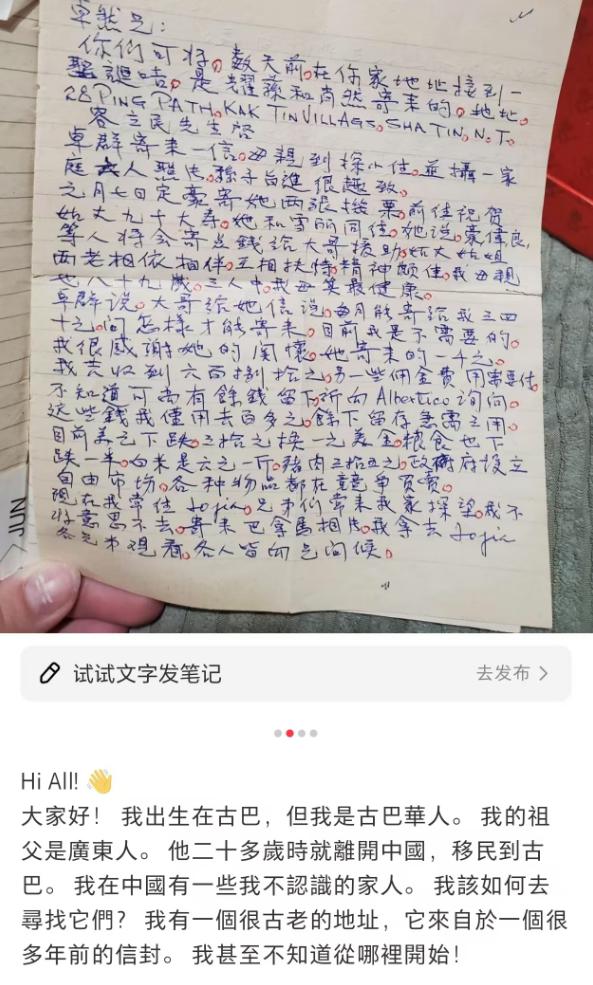 卓然兄:
你們可好，數天前，在你家地址接到一
聖誕咭，是耀蓀和肖然寄来的，地址。
28 PING PATH, KAK TIN VILLAGS, SHA TIN, N.T.
客立民先生啓
卓群寄来一信，母親到探小住，並攝一家
庭六人照片，孫子白進很趣致。
之月七日定豪寄她两張機票，前往祝賀
姑丈九十大寿。她和雪丽同住。她说，豪偉良，
等人将会寄点錢给大哥援助，姑丈姑姐
两老相依相伴，互相扶持，精神颇佳，我母親
也八十九歲，三人中，我母算最健康。
卓群说，大哥给她信说，每月能寄给我三四
十元，问怎樣才能寄来。目前我是不需要的。
我很感謝她的関懷。她寄来的一千元，
我共收到六百捌拾元，另一些佣金費用需要付，
不知道可尚有餘錢留下，祈向Albertico询问。
这些錢我僅用去百多元，餘下留存急需之用。
目前美元下跌，三拾元换一元美金，粮食也下
跌一半，白米是六元一斤，猪肉三拾五元，政府设立
自由市场，各种物品都在競争買卖。
现在我常住Jojia，兄弟们常来我家探望，我不
好意思不去。寄来巴拿馬相片，我拿去Jojia
各兄弟观看，各人皆向兄问候。
JUN
试试文字发笔记
去发布 >
Hi All! 👋
大家好！ 我出生在古巴，但我是古巴華人。 我的祖
父是廣東人。 他二十多歲時就離開中國，移民到古
巴。 我在中國有一些我不認識的家人。 我該如何去
尋找它們？ 我有一個很古老的地址，它來自於一個很
多年前的信封。 我甚至不知道從哪裡開始！